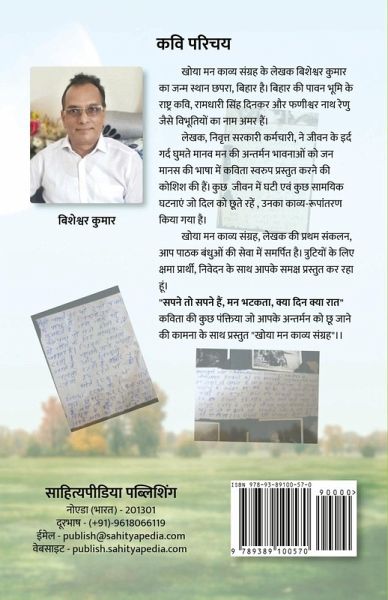 कवि परिचय
खोया मन काव्य संग्रह के लेखक बिशेश्वर कुमार
का जन्म स्थान छपरा, बिहार है। बिहार की पावन भूमि के
राष्ट्र कवि, रामधारी सिंह दिनकर और फणीश्वर नाथ रेणु
जैसे विभूतियों का नाम अमर हैं।
लेखक, निवृत्त सरकारी कर्मचारी, ने जीवन के इर्द
गर्द घुमते मानव मन की अन्तर्मन भावनाओं को जन
मानस की भाषा में कविता स्वरुप प्रस्तुत करने की
कोशिश की हैं। कुछ जीवन में घटी एवं कुछ सामयिक
घटनाएं जो दिल को छूते रहें , उनका काव्य-रूपांतरण
किया गया है।
बिशेश्वर कुमार
खोया मन काव्य संग्रह, लेखक की प्रथम संकलन,
आप पाठक बंधुओं की सेवा में समर्पित है। त्रुटियों के लिए
क्षमा प्रार्थी, निवेदन के साथ आपके समक्ष प्रस्तुत कर रहा
हूं।
"सपने तो सपने हैं, मन भटकता, क्या दिन क्या रात"
कविता की कुछ पंक्तिया जो आपके अन्तर्मन को छू जाने
की कामना के साथ प्रस्तुत "खोया मन काव्य संग्रह"।।
साहित्यपीडिया पब्लिशिंग
नोएडा (भारत) - 201301
दूरभाष - (+91)-9618066119
ईमेल - publish@sahityapedia.com
वेबसाइट - publish.sahityapedia.com
ISBN 978-93-89100-57-0
90000>
9 789389 100570